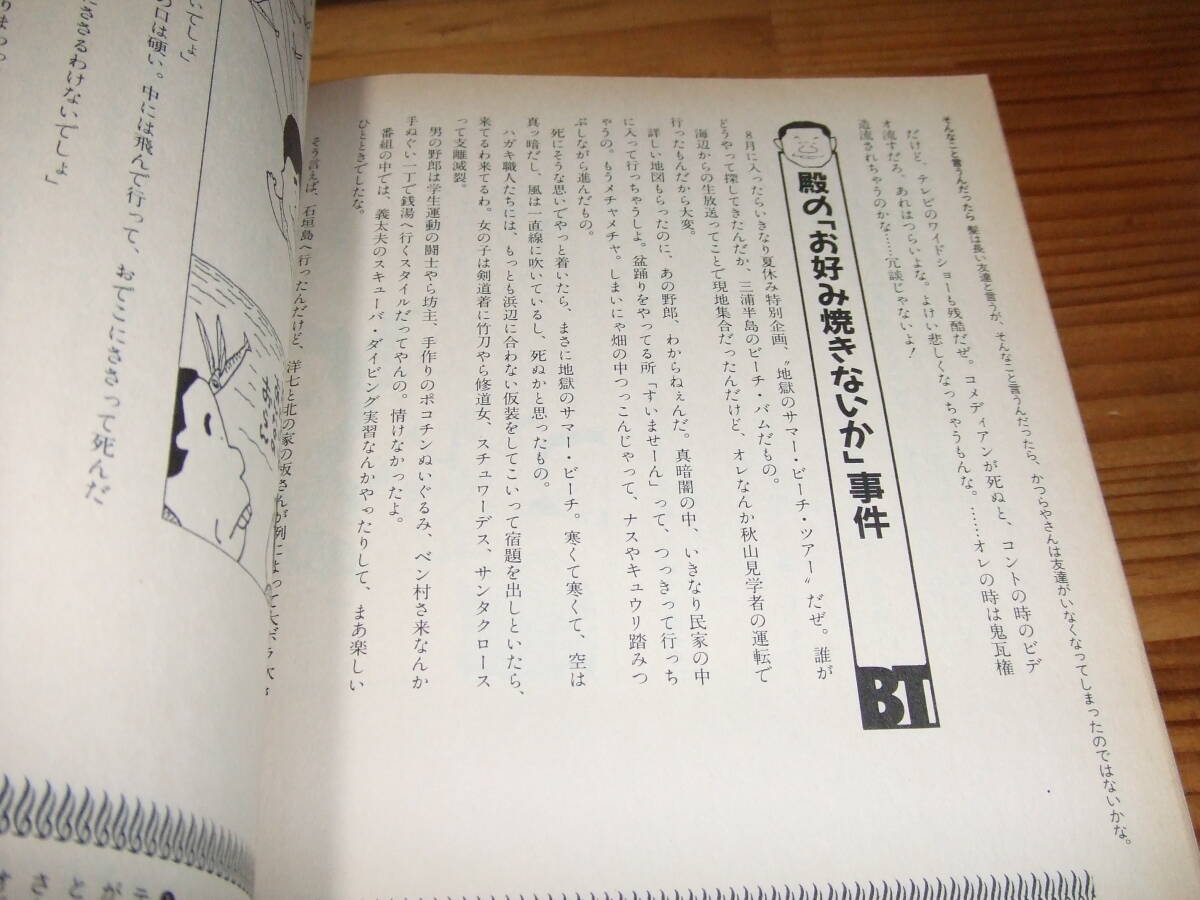 そんなこと言うんだったら髪は長い友達と言うが、そんなこと言うんだったら、かつらやさんは友達がいなくなってしまったのではないかな。
だけど、テレビのワイドショーも残酷だぜ。コメディアンが死ぬと、コントの時のビデ
オ流すだろ、あれはつらいよな。よけい悲しくなっちゃうもんな。……オレの時は鬼瓦権
造流されちゃうのかな……冗談じゃないよ!
殿の「お好み焼きないか」事件
BT
8月に入ったらいきなり夏休み特別企画、〝地獄のサマー・ビーチ・ツアー〟だぜ。誰が
どうやって探してきたんだか、三浦半島のビーチ・バムだもの。
海辺からの生放送ってことで現地集合だったんだけど、オレなんか秋山見学者の運転で
行ったもんだから大変。
詳しい地図もらったのに、あの野郎、わからねぇんだ。真暗闇の中、いきなり民家の中
に入って行っちゃうしょ。盆踊りをやってる所「すいませーん」って、つっきって行っち
ゃうの。もうメチャメチャ。しまいにゃ畑の中つっこんじゃって、ナスやキュウリ踏みつ
ぶしながら進んだもの。
死にそうな思いでやっと着いたら、まさに地獄のサマー・ビーチ。寒くて寒くて、空は
真ッ暗だし、風は一直線に吹いているし、死ぬかと思ったもの。
ハガキ職人たちには、もっとも浜辺に合わない仮装をしてこいって宿題を出しといたら、
来てるわ来てるわ。女の子は剣道着に竹刀やら修道女、スチュワーデス、サンタクロース
って支離滅裂。
男の野郎は学生運動の闘士やら坊主、手作りのポコチンぬいぐるみ、ベン村さ来なんか
手ぬぐい一丁で銭湯へ行くスタイルだってやんの。情けなかったよ。
番組の中では、義太夫のスキューバ・ダイビング実習なんかやったりして、まあ楽しい
ひとときでしたな。
そう言えば、石垣島へ行ったんだけど、洋七と北の家の坂さんが例によって大ボラ
いでしょ」
の口は硬い。中には飛んで行って、おでこにささって死んだ
にささるわけないでしょ」
すさとがテ